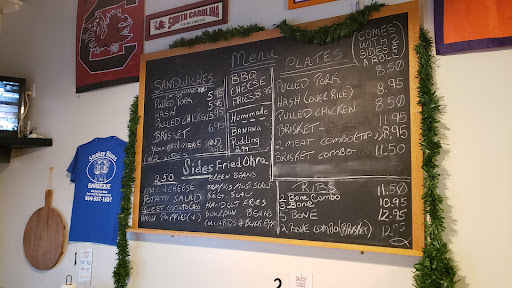 SOUTH CAROLINA
Menu
SANDWICHES
PULLED PORK 5.95
HASH 5.95
PULLED CHICKEN
BRISKET
BBQ
CHEESE
FRIES
Homemade
BANANA
Pudding
2.99
Sides
2.50
Fried Okra
GREEN BEANS
MAC-N-CHEESE
POTATO SALAD
SWEET POTATO
HUSH PUPPIES
BBQ SLAW
HAND CUT FRIES
BOURBON BEANS
PLATES
COMES
WITH 2
SIDES
PULLED PORK 8.50
HASH (OVER RICE) 8.95
PULLED CHICKEN 8.50
BRISKET 11.95
2 MEAT COMBO 8.95
BRISKET COMBO 11.50
RIBS
2 BONE COMBO 11.50
3 BONE 10.95
5 BONE 12.95
2 BONE COMBO (BRISKET) 12.95
BARBECUE
SAUCE